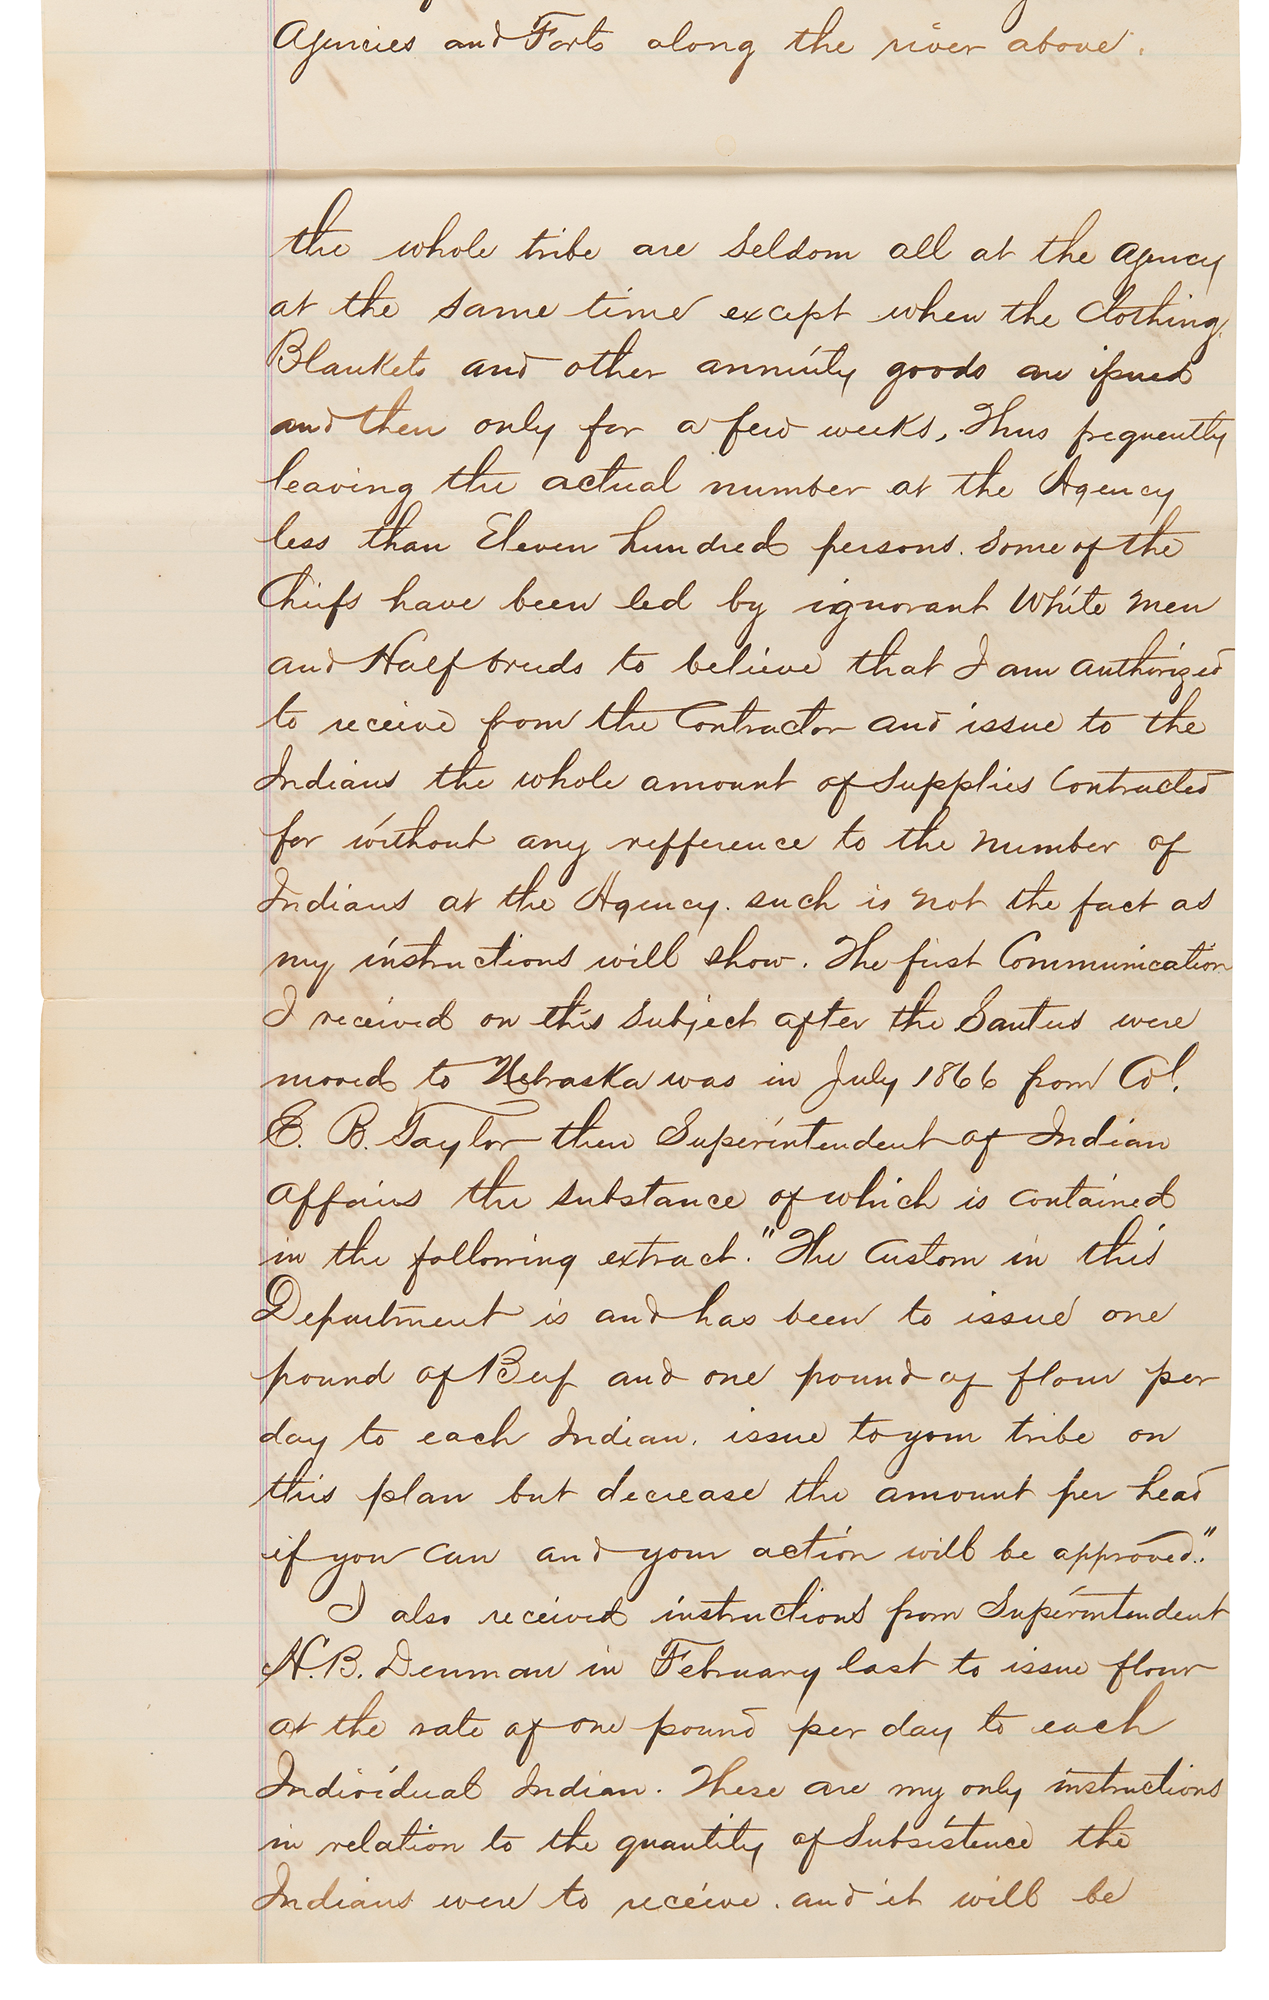 Agencies and Forts along the river above.
the whole tribe are seldom all at the agency
at the same time except when the Clothing,
Blankets and other annuity goods are issued
and then only for a few weeks, Thus frequently
leaving the actual number at the Agency
less than Eleven hundred persons. Some of the
Chiefs have been led by ignorant White men
and Half breeds to believe that I am authorized
to receive from the Contractor and issue to the
Indians the whole amount of Supplies Contracted
for without any refference to the number of
Indians at the Agency. such is not the fact as
my instructions will show. The first Communication
I received on this subject after the Santees were
moved to Nebraska was in July 1866 from Col.
E. B. Taylor then Superintendent of Indian
affairs the substance of which is contained
in the following extract. "The Custom in this
Department is and has been to issue one
pound of Beef and one pound of flour per
day to each Indian. issue to your tribe on
this plan but decrease the amount per head
if you can and your action will be approved."
I also received instructions from Superintendent
H. B. Denman in February last to issue flour
at the rate of one pound per day to each
Individual Indian. These are my only instructions
in relation to the quantity of Subsistence the
Indians were to receive. and it will be